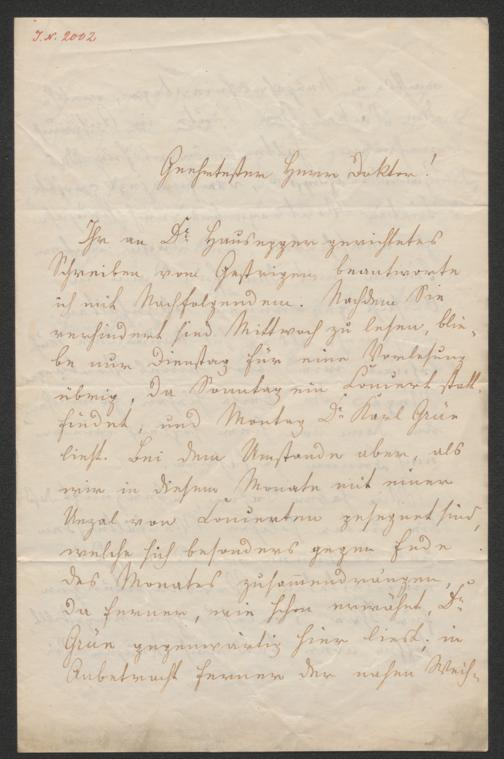 J. N. 2002
Geehrtester Herr Doktor!
Ihr an Dr. Hausegger gerichtetes
Schreiben vom Gestrigen beantworte
ich mit Nachfolgendem. Nachdem Sie
verhindert sind Mittwoch zu lesen, blie-
be nur Dienstag für eine Vorlesung
übrig, da Sonntag ein Concert statt-
findet, und Montag Dr. Karl Grün
liest. Bei dem Umstande aber, als
wir in diesem Monate mit einer
Unzal von Concerten gesegnet sind,
welche sich besonders gegen Ende
des Monates zusammendrängen,
da ferner, wie schon erwähnt, Dr.
Grün gegenwärtig hier liest; in
Anbetracht ferner der nahen Weih-